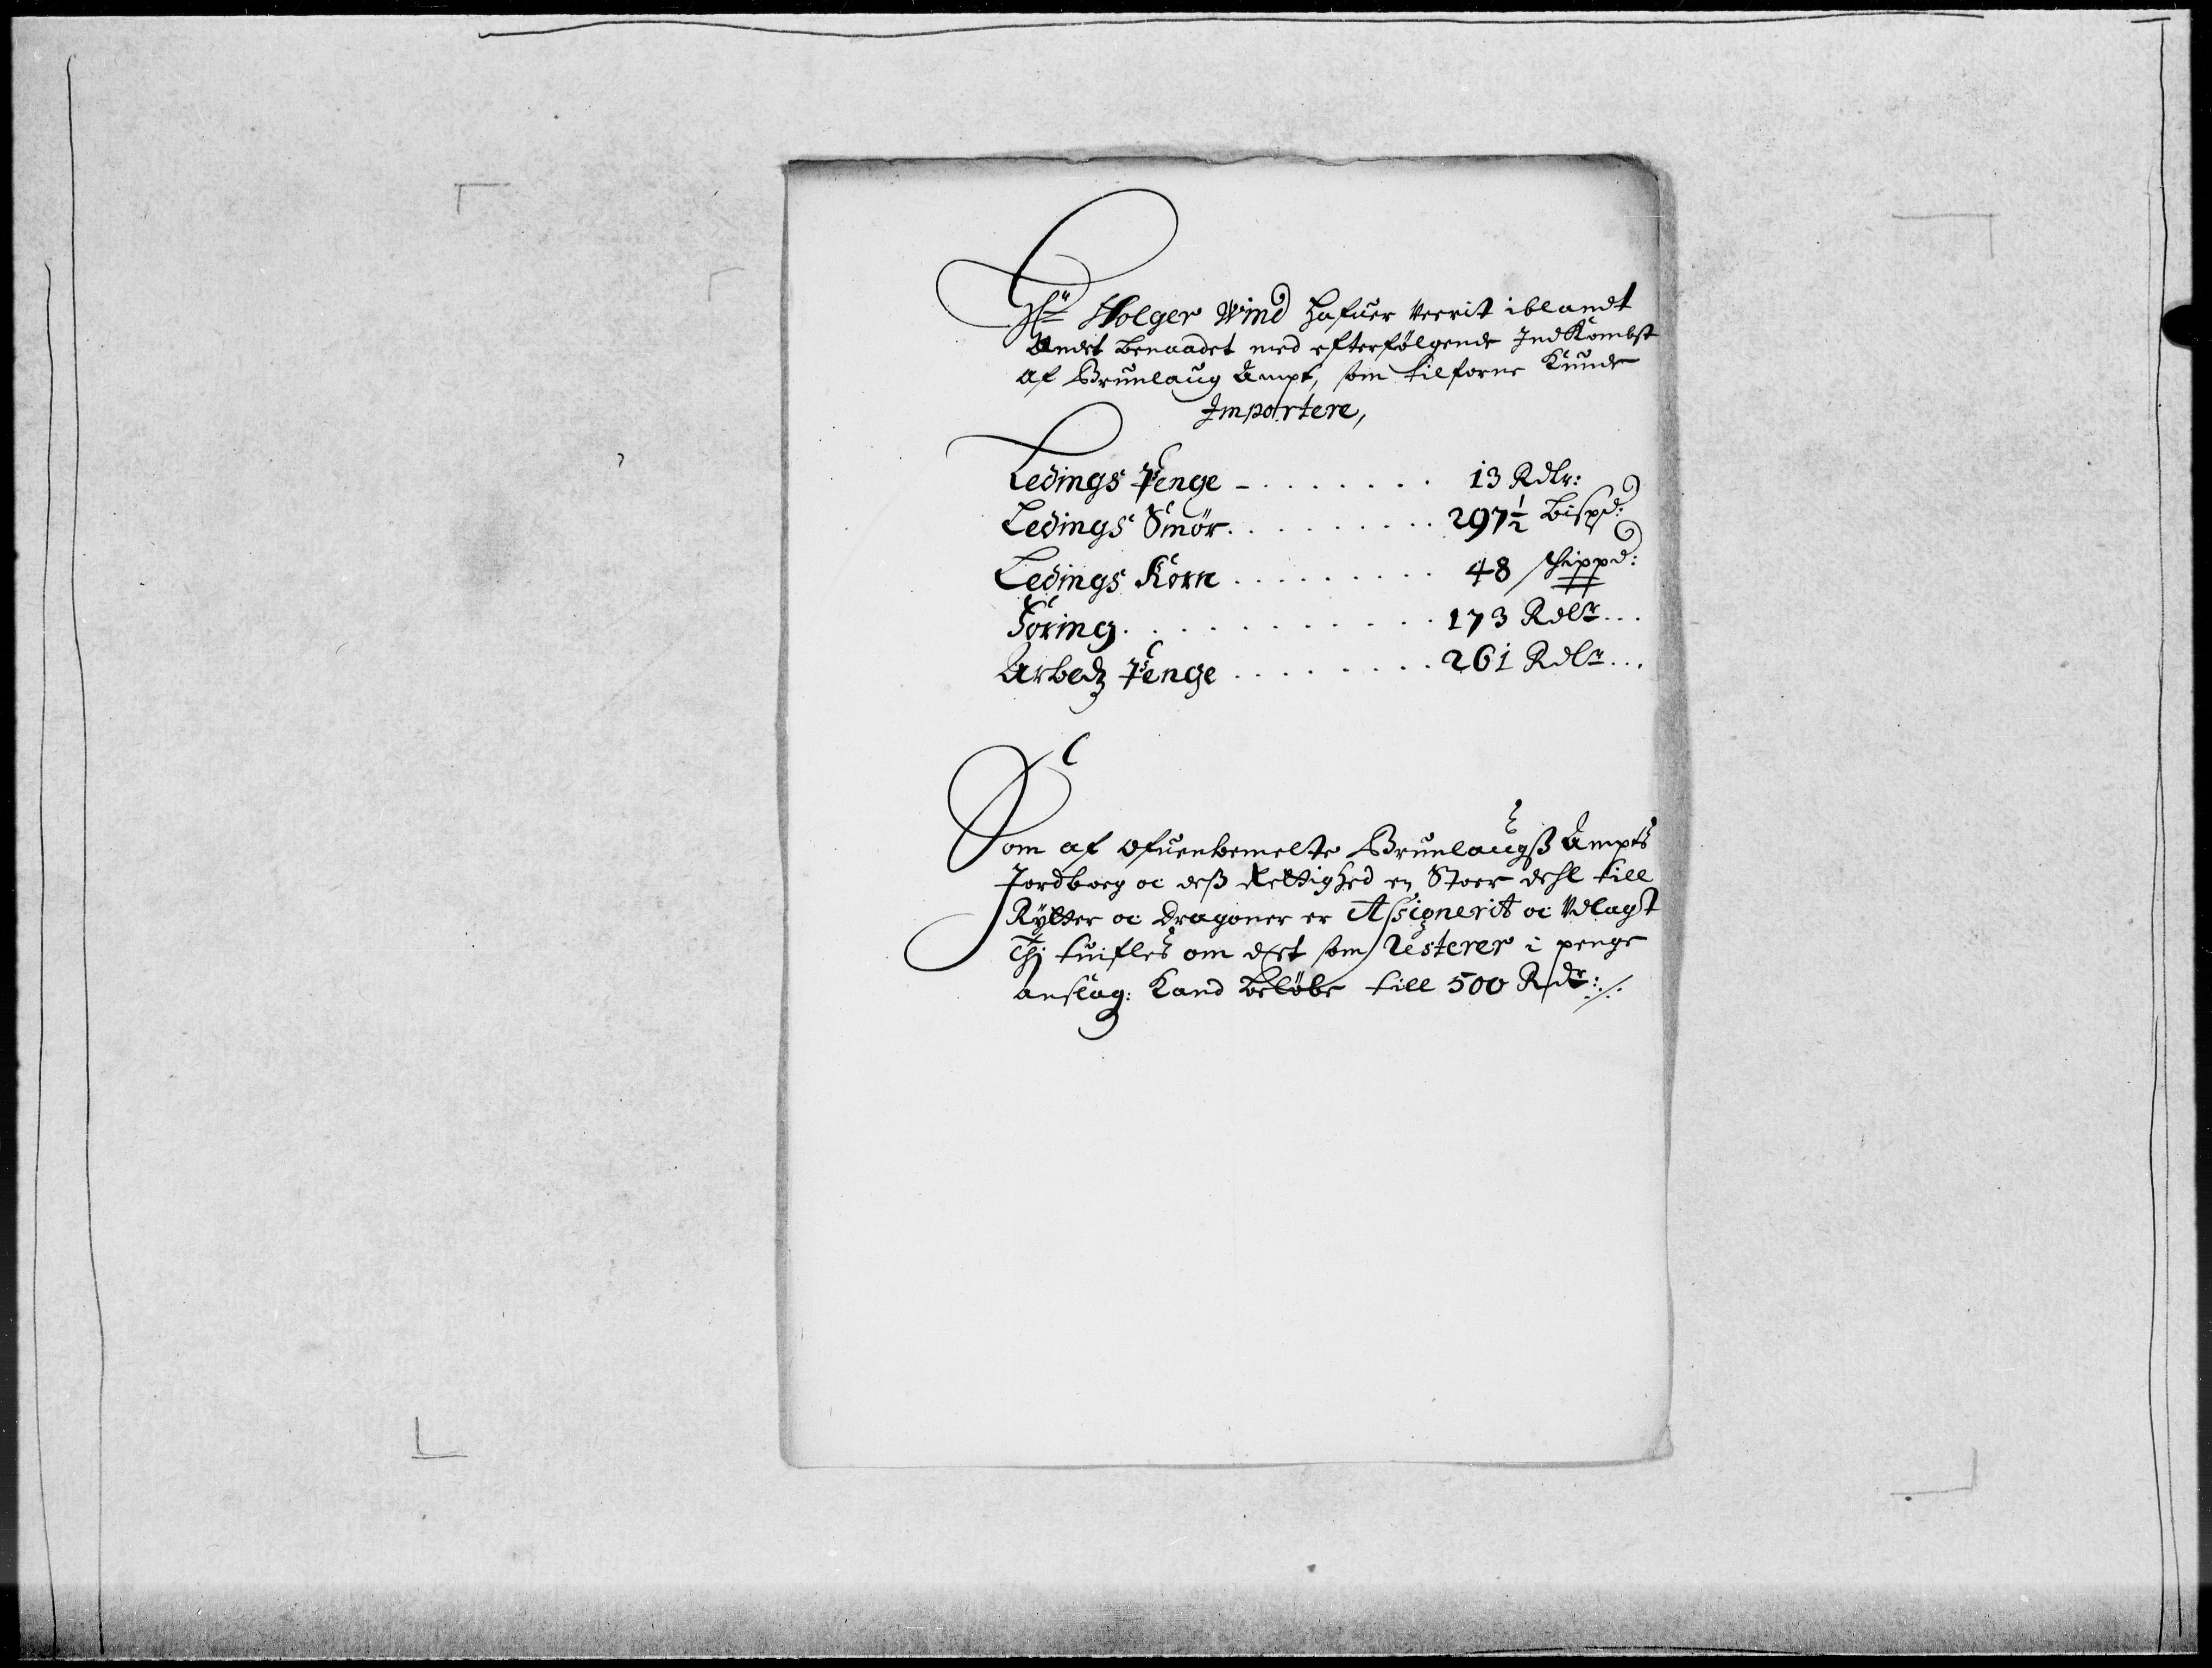 Hr Holger Wind hafuer veerit iblandt
Andet benaadet med efterfølgende Jndkombst
af Brunlaug Ampt, som tilforne kunde
Importere,
Ledings Penge - . . . . . . . 13 Rdlr:
Ledings Smør . . . . . . . . 297½ bispd:
Ledings Korn . . . . . . . . 48 skippd:
Foring . . . . . . . . . . . 173 Rdlr...
Arbedz Penge . . . . . . . . 261 Rdlr...
Som af ofuenbemelte Brunlaugß Ampts
Jordboeg oc deß Rettighed en Stoer dehl till
Rÿtter oc Dragoner er Assignerit oc Vdlagt
Thj tuifles om det som Resterer i penge
anslag: Kand beløbe till 500 Rdr:/.